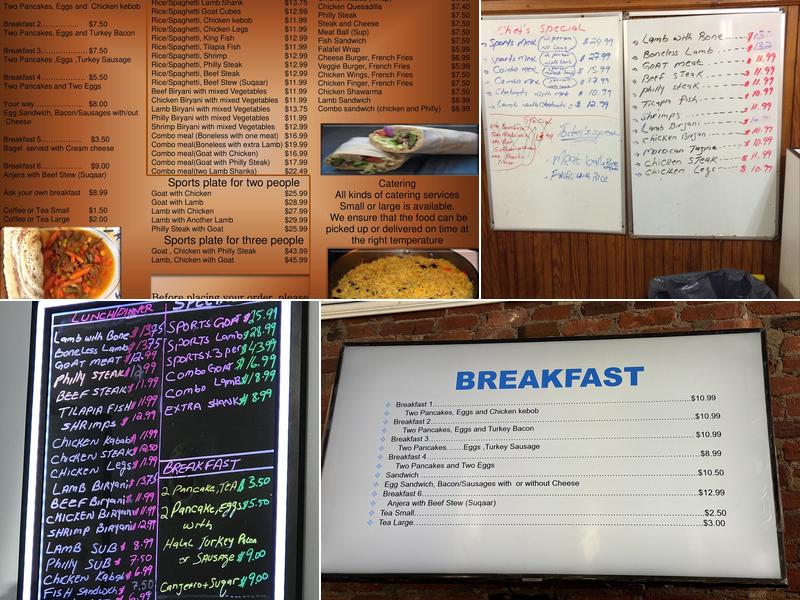 Two Pancakes, Eggs and Chicken kebob
Breakfast 2.............. $7.50
Two Pancakes, Eggs and Turkey Bacon
Breakfast 3............... $7.50
Two Pancakes ,Eggs ,Turkey Sausage
Breakfast 4............... $5.50
Two Pancakes and Two Eggs
Your way................. $8.00
Egg Sandwich, Bacon/Sausages with/out
Cheese
Breakfast 5................ $3.50
Bagel served with Cream cheese
Breakfast 6................ $9.00
Anjera with Beef Stew (Suqaar)
Ask your own breakfast $8.99
Coffee or Tea Small $1.50
Coffee or Tea Large $2.00
Rice/Spaghetti Lamb Shank $13.75
Rice/Spaghetti Goat Cubes $12.99
Rice/Spaghetti, Chicken kebob $11.99
Rice/Spaghetti, Chicken Legs $11.99
Rice/Spaghetti, King Fish $12.99
Rice/Spaghetti, Tilapia Fish $11.99
Rice/Spaghetti, Shrimp $12.99
Rice/Spaghetti, Philly Steak $12.99
Rice/Spaghetti, Beef Steak $12.99
Rice/Spaghetti, Beef Stew (Suquar) $11.99
Beef Biryani with mixed Vegetables $11.99
Chicken Biryani with mixed Vegetables $11.99
Lamb Biryani with mixed Vegetables $13.75
Shrimp Biryani with mixed Vegetables $12.99
Combo meal(Boneless with one meat) $16.99
Combo meal(Boneless with extra Lamb) $19.99
Combo meal(Goat with Chicken) $16.99
Combo meal(Goat with Philly Steak) $17.99
Combo meal(two Lamb Shanks) $22.49
Sports plate for two people
Goat with Chicken $25.99
Goat with Lamb $28.99
Lamb with Chicken $27.99
Lamb with Another Lamb $29.99
Philly Steak with Goat $25.99
Sports plate for three people
Goat , Chicken with Philly Steak $43.99
Lamb, Chicken with Goat $45.99
Before placing your order, please
Chicken Quesadilla $7.40
Philly Steak $7.50
Steak and Cheese $7.50
Meat Ball (Sup) $7.50
Fish Sandwich $7.50
Falafel Wrap $5.99
Cheese Burger, French Fries $6.99
Veggie Burger, French Fries $5.99
Chicken Wings, French Fries $7.50
Chicken Finger, French Fries $7.50
Chicken Shawarma $7.50
Lamb Sandwich $8.99
Combo sandwich (chicken and Philly) $8.99
Catering
All kinds of catering services
Small or large is available.
We ensure that the food can be
picked up or delivered on time at
the right temperature
Chef's Special
Sports meal 2 person No Lamb $24.99
Sports meal 2 person with Lamb $27.99
Combo meal $15.99
Combo meal with Lamb $17.99
$10.99
$12.99
Special
Today's special
Meat ball
with Rice
Lamb with Bone
Boneless Lamb
GOAT meat $11.99
Beef Steak $11.99
Philly steak $11.99
Tilapia Fish $10.99
Shrimps $11.99
Lamb Birjani
Chicken Birjani $10.99
moroccan Tagine $10.99
Chicken Steak $11.99
Chicken Legs $10.99
LUNCH/DINNER
Lamb with Bone $13.75
Boneless Lamb $13.75
GOAT MEAT $12.99
Philly STEAK $12.99
BEEF STEAK $11.99
TILAPIA FISH $11.99
SHRIMPS $12.99
Chicken Kabab $11.99
Chicken STEAK $12.50
Chicken Legs $11.99
LAMB Biryani $13.75
BEEF Biryani $11.99
CHICKEN Biryani $11.99
SHRIMP Biryani $12.99
LAMB SUB $8.99
Philly SUB $7.50
Chicken Kabab $6.99
FISH Sandwich $7.50
SPECIAL
SPORTS GOAT $25.99
SPORTS Lamb $28.99
SPORTSx3 per $43.99
Combo GOAT $16.99
Combo LAMB $18.99
EXTRA SHANK $8.99
BREAKFAST
2 Pancake, TEA $3.50
2 Pancake, Eggs $5.50
with
Halal Turkey Bacon
or SAUSAGE $9.00
Canjeero+Sugar $9.00
BREAKFAST
Breakfast 1 $10.99
Two Pancakes, Eggs and Chicken kebob
Breakfast 2 $10.99
Two Pancakes, Eggs and Turkey Bacon
Breakfast 3 $10.99
Two Pancakes.......Eggs ,Turkey Sausage
Breakfast 4 $8.99
Two Pancakes and Two Eggs
Sandwich $10.50
Egg Sandwich, Bacon/Sausages with or without Cheese
Breakfast 6 $12.99
Anjera with Beef Stew (Suqaar)
Tea Small $2.50
Tea Large $3.00